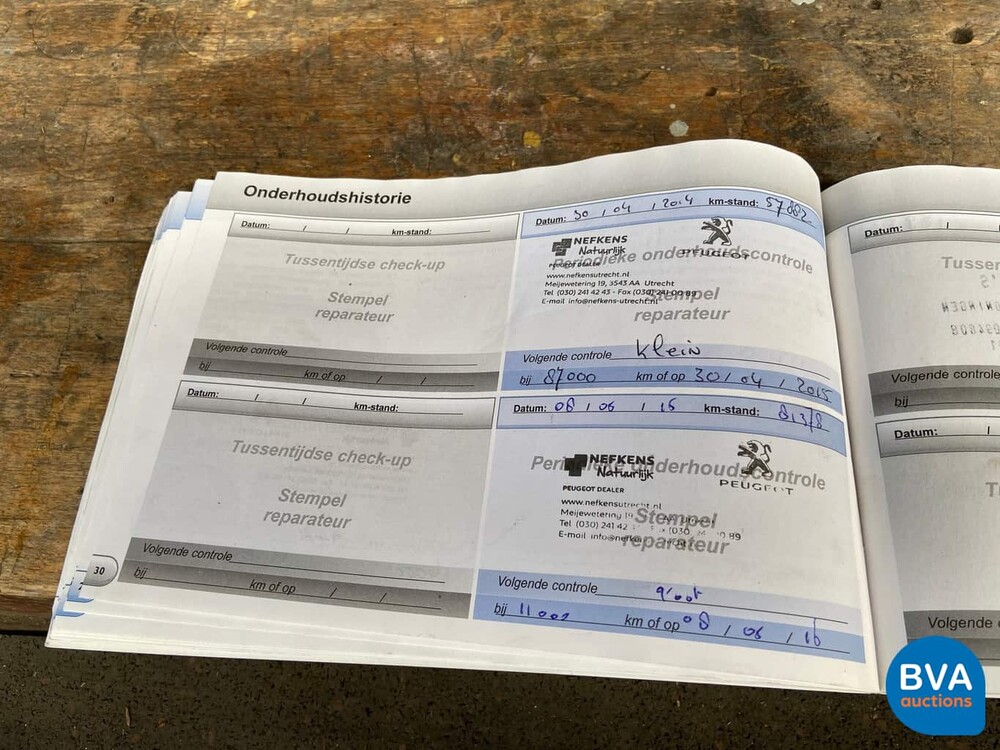 Onderhoudshistorie
Datum: / / km-stand:
Tussentijdse check-up
Stempel
reparateur
Volgende controle
bij km of op / /
Datum: 30 / 04 / 2014 km-stand: 57882
NEFKENS
Natuurlijk
PEUGEOT DEALER
PEUGEOT
Periodieke onderhoudscontrole
www.nefkensutrecht.nl
Meijewetering 19, 3543 AA Utrecht
Tel (030) 241 42 43 - Fax (030) 241 00 89
E-mail info@nefkens-utrecht.nl
Stempel
reparateur
Volgende controle Klein
bij 87000 km of op 30 / 04 / 2015
Datum: / / km-stand:
Tussentijdse check-up
Stempel
reparateur
Volgende controle
bij km of op / /
Datum: 08 / 06 / 15 km-stand: 81378
NEFKENS
Natuurlijk
PEUGEOT DEALER
PEUGEOT
Periodieke onderhoudscontrole
www.nefkensutrecht.nl
Meijewetering
Tel (030) 241 42
E-mail
Stempel
reparateur
Volgende controle groot
bij 11000 km of op 08 / 06 / 16
30
Datum: /
Volgende controle
bij
Datum: /
Volgende
BVA
auctions